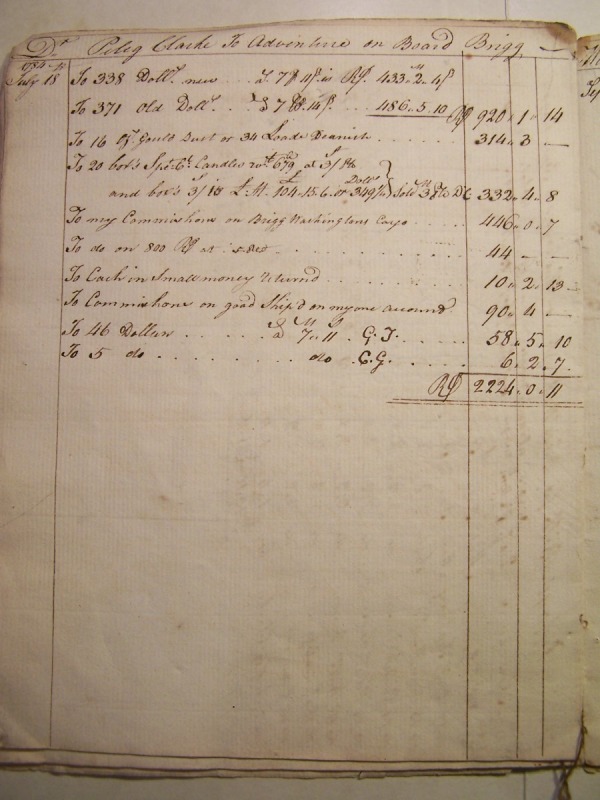 Dr Peleg Clarke To Adventure on Board Brigg
July 18 To 338 Dollrs new 433 „ 2 „
To 371 Old Dollrs 486 „ 5 „ 10 R$ 920 „ 1 „ 14
To 16 oz Gould Dust or 34 Loads Deanish 314 „ 3 „ —
To 20 box's Candles wt 679 at 3/18
and box's 3/18 104 „ 15 „ 6 or 349 Sold 332 „ 4 „ 8
To my Commissions on Brigg Washingtons Cargo 446 „ 0 „ 7
To do on 800 R$ at 44 — —
To Cash in Small money returnd 10 „ 2 „ 13
To Commissions on good Ship'd on my one account 90 „ 4 —
To 46 Dollars a 7 „ 11 G. T. 58 „ 5 „ 10
To 5 do do C. G. 6 „ 2 „ 7
R$ 2224 „ 0 „ 11